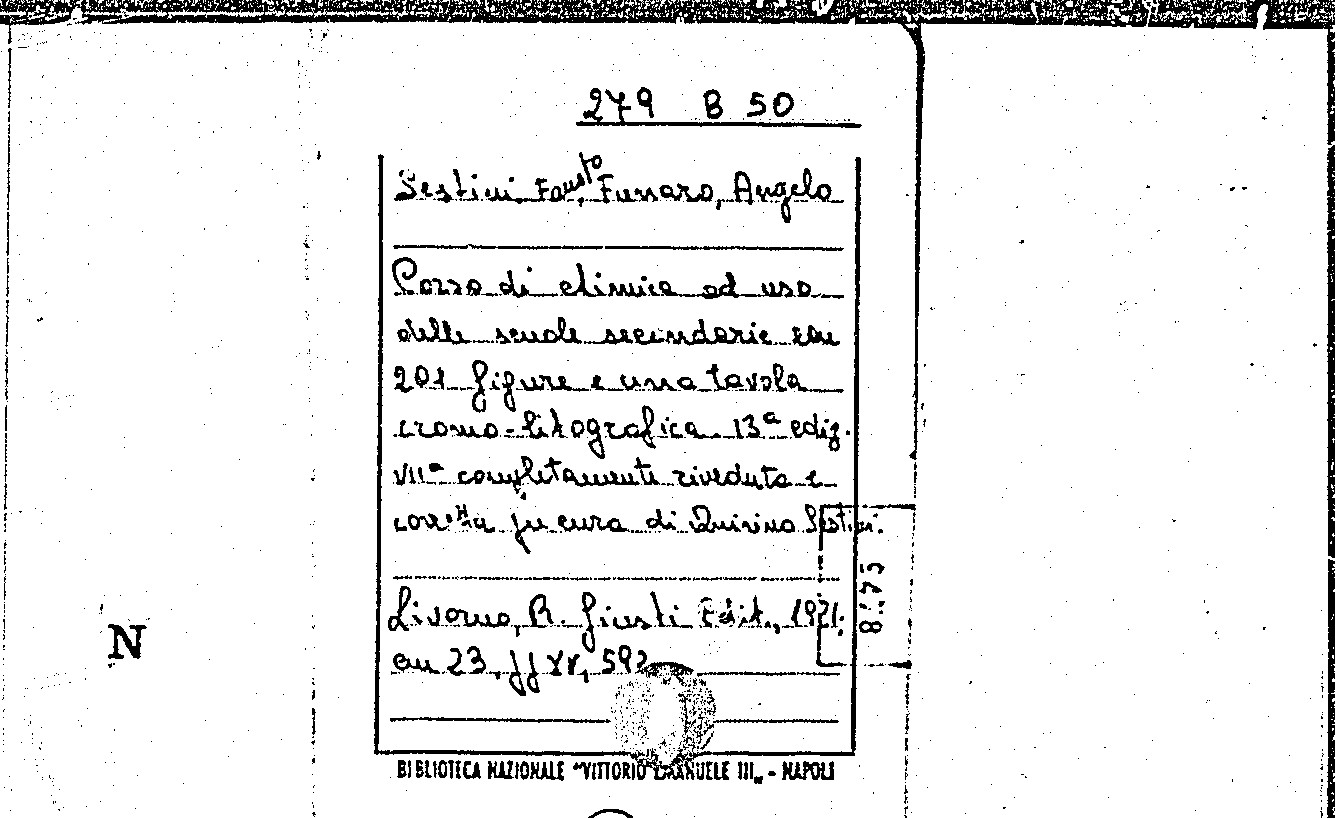 279 B 50
Sestini, Fausto, Funaro, Angelo
Corso di chimica ad uso
delle scuole secondarie con
201 figure e una tavola
cromo-litografica. 13ª ediz.
VIIª completamente riveduta e
corretta per cura di Quirino Sestini.
8.:75
Livorno, R. Giusti Edit., 1921.
cm 23, pp XX, 592
N
BIBLIOTECA NAZIONALE "VITTORIO EMANUELE III„ - NAPOLI